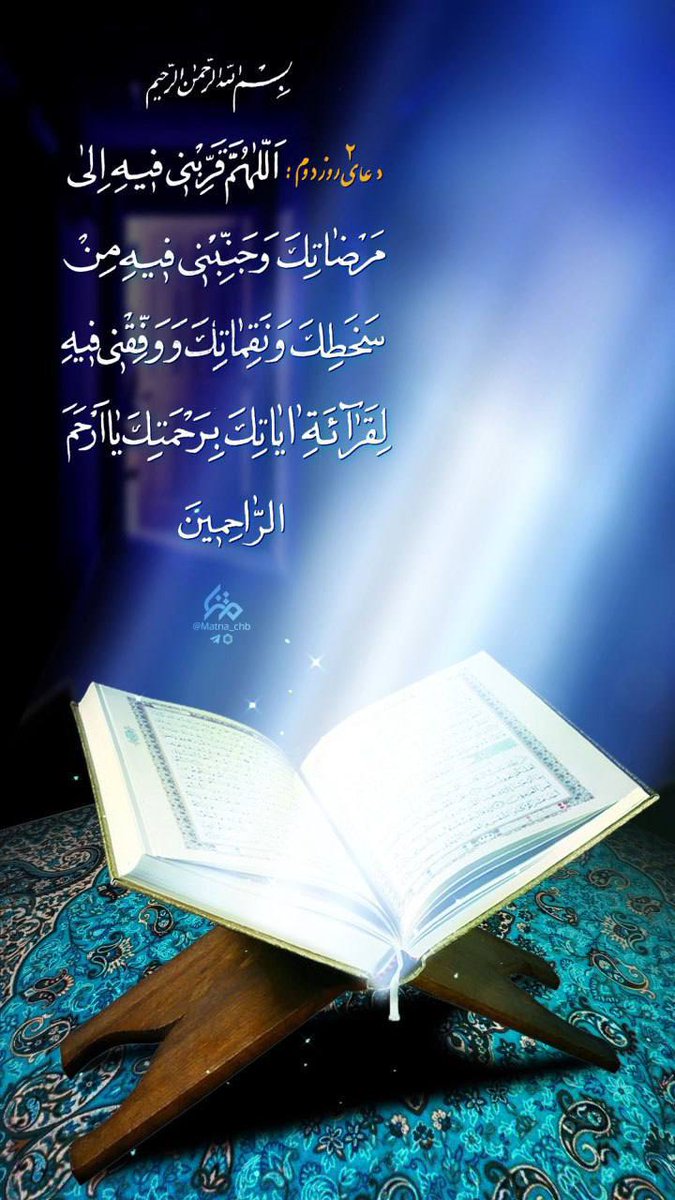 بِسْمِ اللهِ الرَّحْمٰنِ الرَّحِیمِ
دعای روز دوم ۲ : اَللّٰهُمَّ قَرِّبْنی فیهِ اِلیٰ
مَرْضٰاتِكَ وَجَنِّبْنی فیهِ مِنْ
سَخَطِكَ وَنَقِمٰاتِكَ وَوَفِّقْنی فیهِ
لِقَرٰآئَةِ اٰیٰاتِكَ بِرَحْمَتِكَ یٰا اَرْحَمَ
الرّٰاحِمینَ
متنا
@Matna_chb